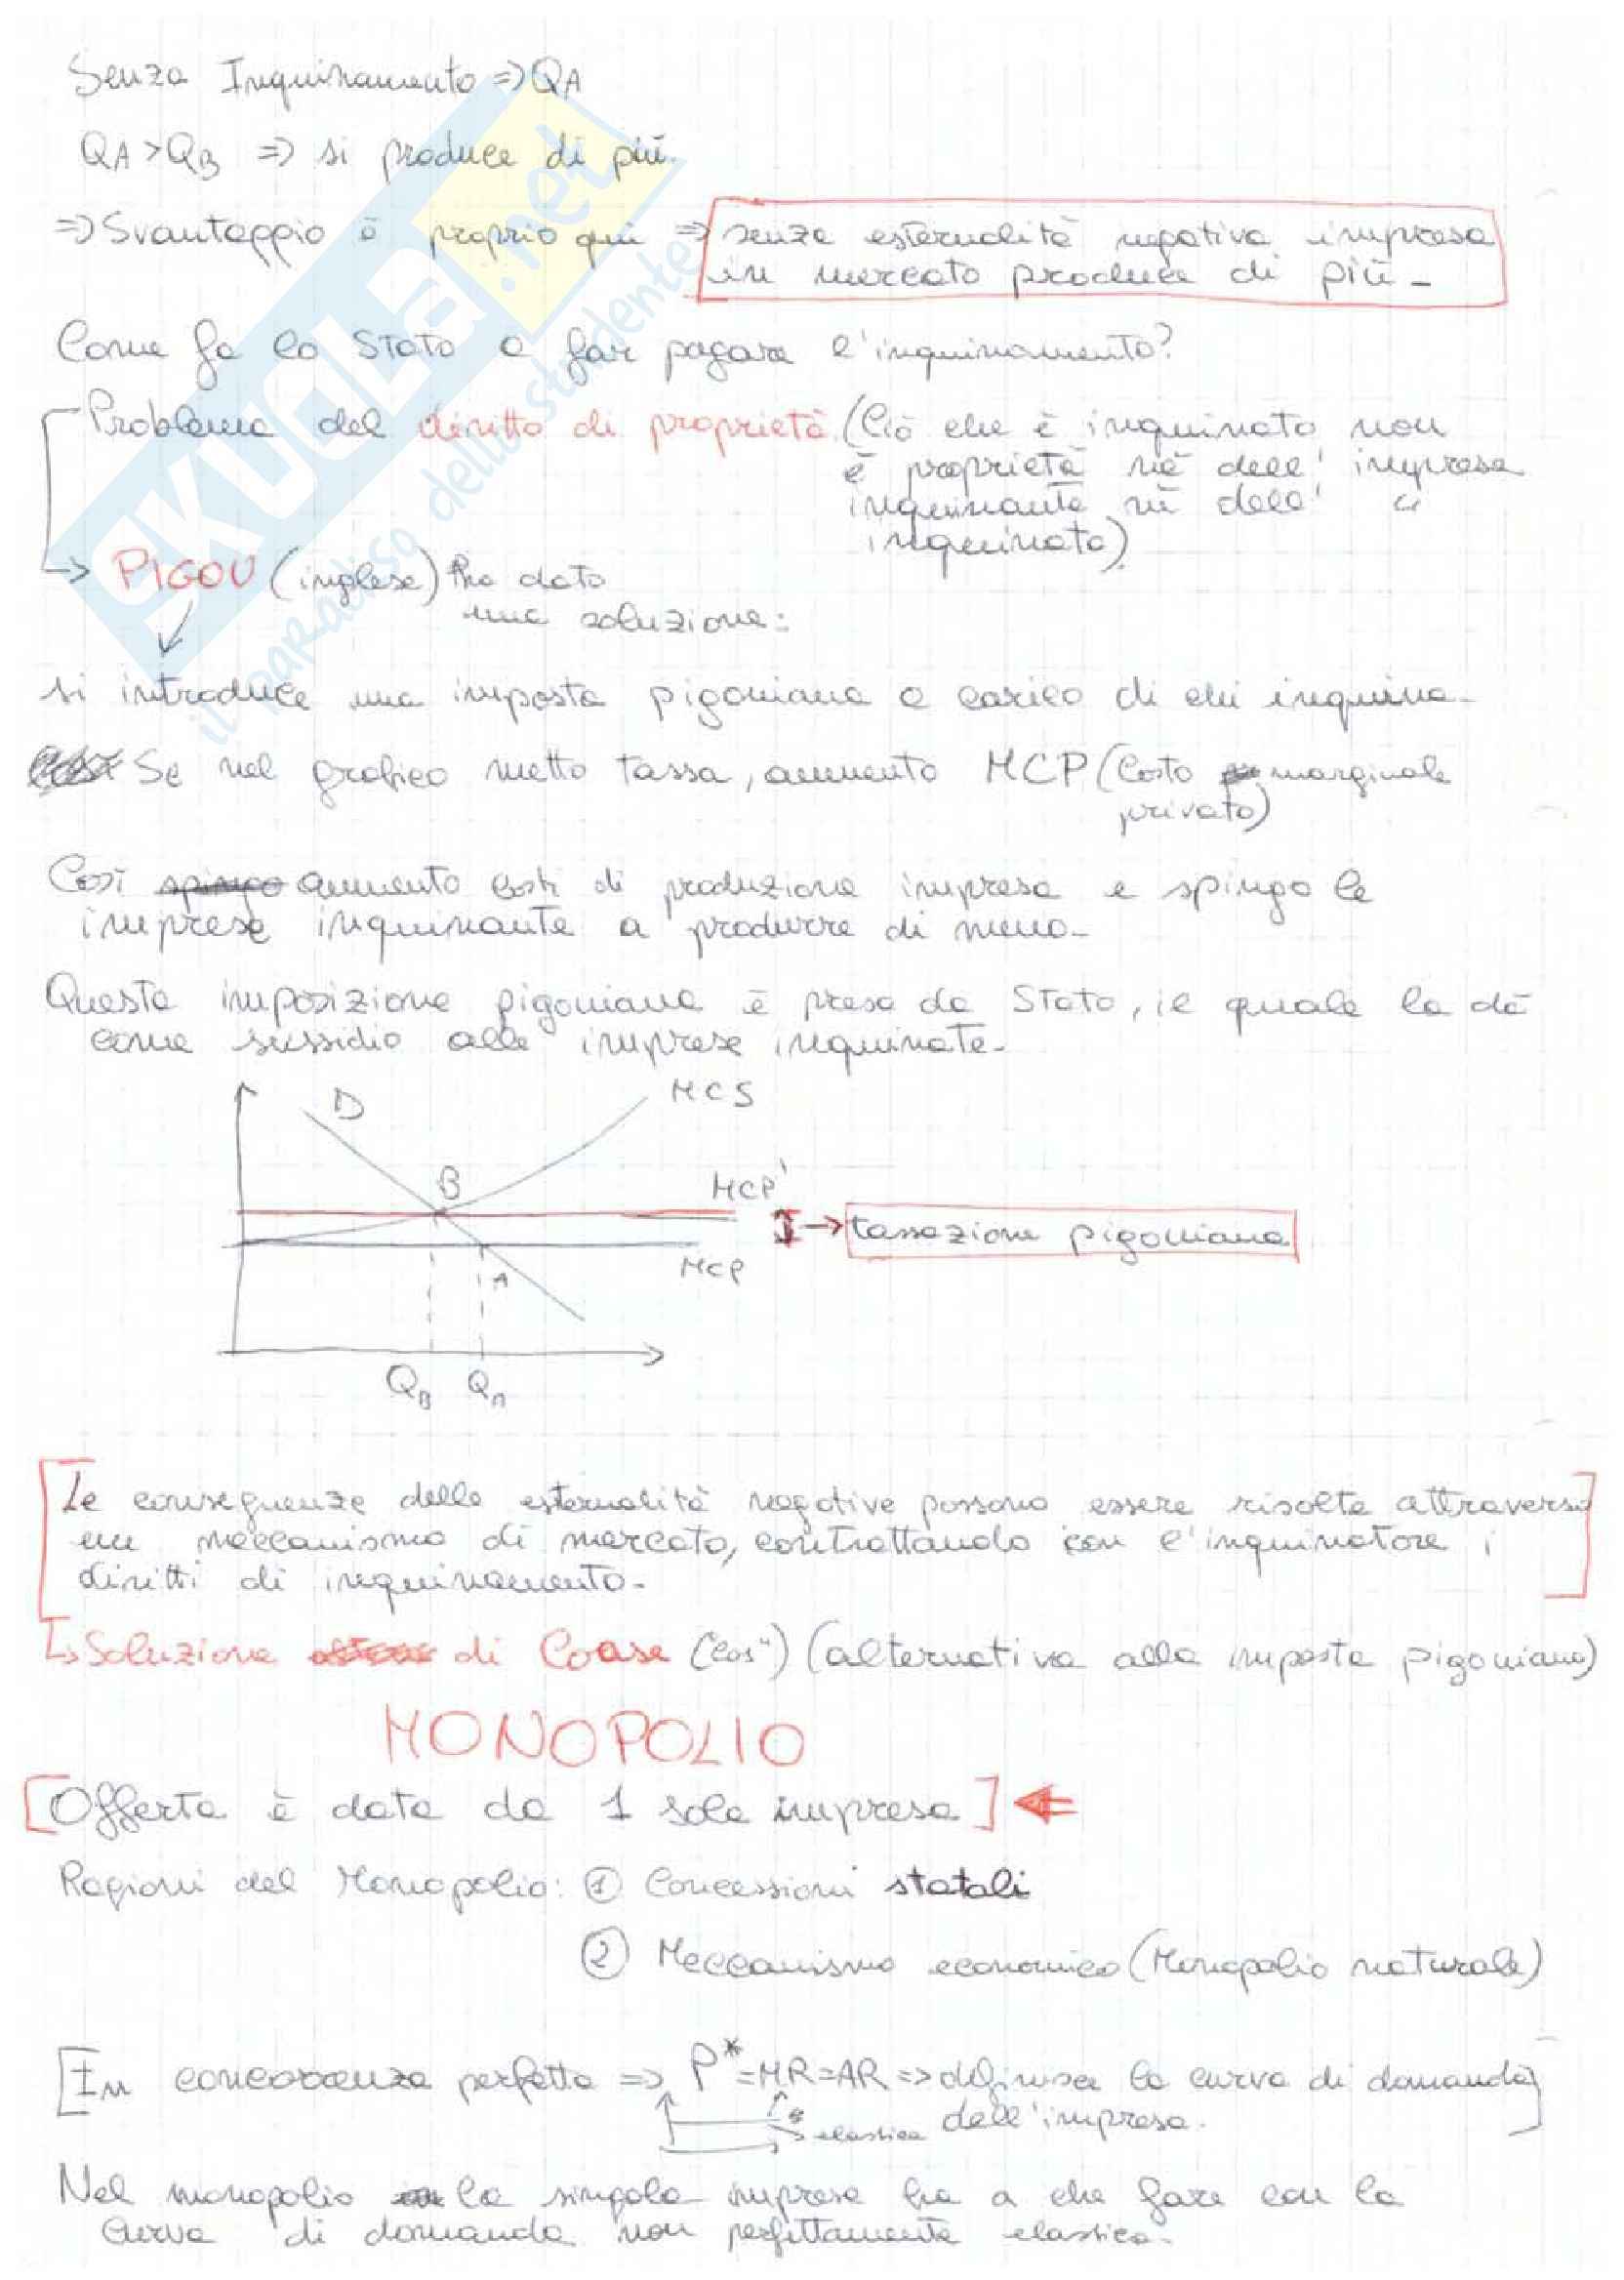 Senza Inquinamento => QA
QA > QB => si produce di più.
=> Svantaggio è proprio qui => senza esternalità negativa impresa
in mercato produce di più -
Come fa lo Stato a far pagare l'inquinamento?
Problema del diritto di proprietà (Ciò che è inquinato non
è proprietà nè dell'impresa
inquinante nè dell' "
inquinata).
-> PIGOU (inglese) ha dato
una soluzione:
si introduce una imposta pigouiana a carico di chi inquina -
Se nel grafico metto tassa, aumento MCP (Costo marginale
privato)
Così aumento costi di produzione impresa e spingo le
imprese inquinante a produrre di meno -
Questa imposizione pigouiana è presa da Stato, il quale la dà
come sussidio alle imprese inquinate -
D
MCS
B
MCP'
-> tassazione pigouiana
MCP
A
QB QA
Le conseguenze delle esternalità negative possono essere risolte attraverso
un meccanismo di mercato, contrattando con l'inquinatore i
diritti di inquinamento -
Soluzione di Coase (Cos") (alternativa alla imposta pigouiana)
MONOPOLIO
[Offerta è data da 1 sola impresa]
Ragioni del Monopolio: ① Concessioni statali
② Meccanismo economico (Monopolio naturale)
[In concorrenza perfetta => P* = MR = AR => definisce la curva di domanda]
elastica dell'impresa.
Nel monopolio la singola impresa ha a che fare con la
curva di domanda non perfettamente elastica.
SKUOLA.net
il paradiso dello studente